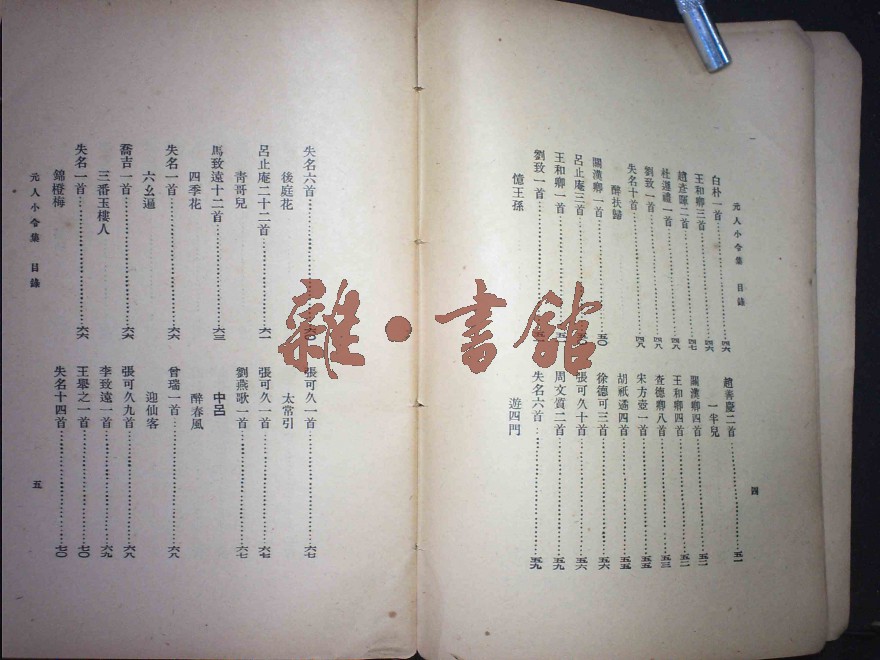 元人小令集 目錄
白朴一首……四六
王和卿三首……四六
趙查暉二首……四七
杜遵禮一首……四八
劉致一首……四八
失名十首……四八
醉扶歸
關漢卿一首……五〇
呂止庵三首……五〇
王和卿一首……五一
劉致一首……五一
憶王孫
趙善慶二首……五一
一半兒
關漢卿四首……五二
王和卿四首……五二
查德卿八首……五三
宋方壺一首……五五
胡祇遹四首……五五
徐德可三首……五六
張可久十首……五六
周文質二首……五九
失名六首……五九
遊四門
四
失名六首……六〇
後庭花
呂止庵二十二首……六一
靑哥兒
馬致遠十二首……六三
四季花
失名一首……六六
六幺遍
喬吉一首……六六
三番玉樓人
失名一首……六六
錦橙梅
元人小令集 目錄
張可久一首……六七
太常引
張可久一首……六七
劉燕歌一首……六七
中呂
醉春風
曾瑞一首……六八
迎仙客
張可久九首……六八
李致遠一首……六九
王舉之一首……七〇
失名十四首……七〇
五
雜·書館